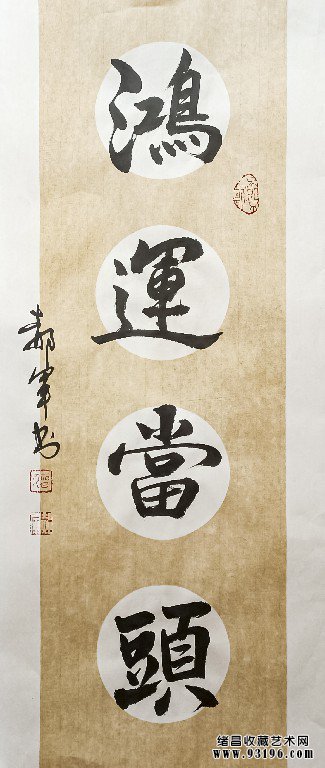 鴻運當頭
郝軍书
绪昌收藏艺术网
www.93196.com